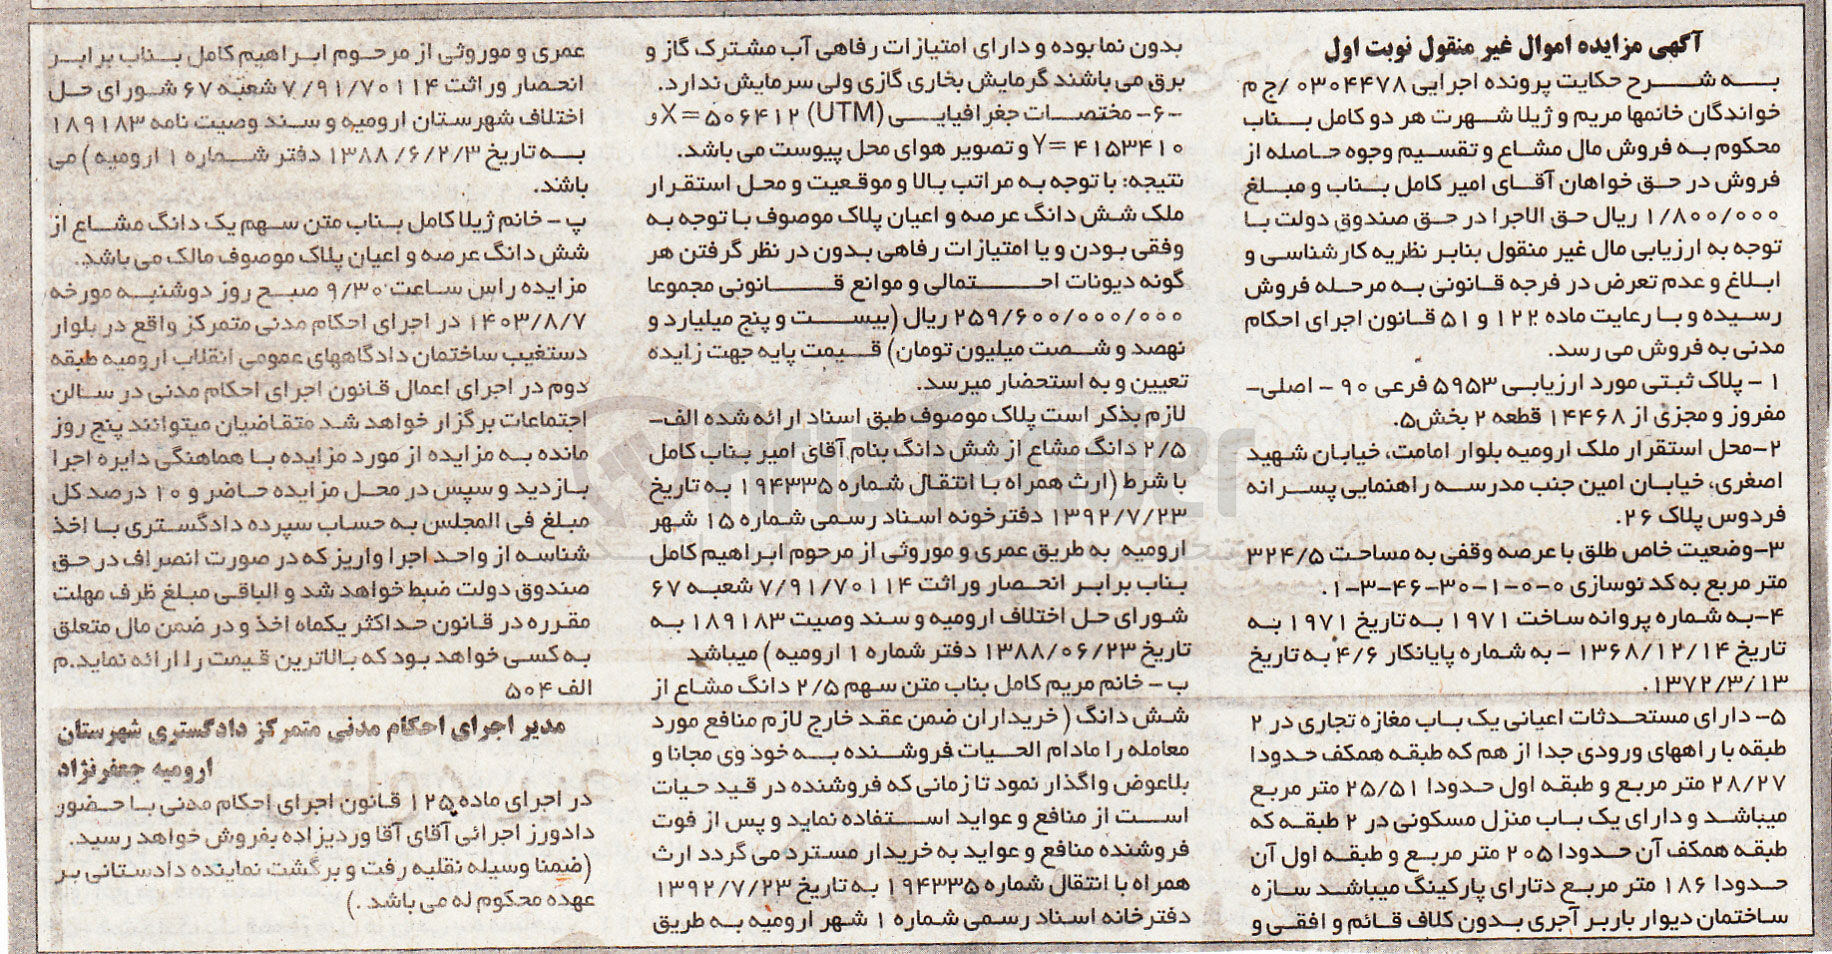 آگهی مزایده اموال غیر منقول نوبت اول
به شرح حکایت پرونده اجرایی ۰۳۰۴۴۷۸/ج م
خواندگان خانمها مریم و ژیلا شهرت هر دو کامل بناب
محکوم به فروش مال مشاع و تقسیم وجوه حاصله از
فروش در حق خواهان آقای امیر کامل بناب و مبلغ
۱/۸۰۰/۰۰۰ ریال حق الاجرا در حق صندوق دولت با
توجه به ارزیابی مال غیر منقول بنابر نظریه کارشناسی و
ابلاغ و عدم تعرض در فرجه قانونی به مرحله فروش
رسیده و با رعایت ماده ۱۲۲ و ۵۱ قانون اجرای احکام
مدنی به فروش می رسد.
۱ - پلاک ثبتی مورد ارزیابی ۵۹۵۳ فرعی ۹۰ - اصلی-
مفروز و مجزی از ۱۴۴۶۸ قطعه ۲ بخش۵.
۲-محل استقرار ملک ارومیه بلوار امامت، خیابان شهید
اصغری، خیابان امین جنب مدرسه راهنمایی پسرانه
فردوس پلاک ۲۶.
۳-وضعیت خاص طلق با عرصه وقفی به مساحت ۳۲۴/۵
متر مربع به کد نوسازی ۰-۰-۱-۳۰-۴۶-۳-۱.
۴-به شماره پروانه ساخت ۱۹۷۱ به تاریخ ۱۹۷۱ به
تاریخ ۱۳۶۸/۱۲/۱۴ - به شماره پایانکار ۴/۶ به تاریخ
۱۳۷۲/۳/۱۳.
۵- دارای مستحدثات اعیانی یک باب مغازه تجاری در ۲
طبقه با راههای ورودی جدا از هم که طبقه همکف حدودا
۲۸/۲۷ متر مربع و طبقه اول حدودا ۲۵/۵۱ متر مربع
میباشد و دارای یک باب منزل مسکونی در ۲ طبقه که
طبقه همکف آن حدودا ۲۰۵ متر مربع و طبقه اول آن
حدودا ۱۸۶ متر مربع دتارای پارکینگ میباشد سازه
ساختمان دیوار باربر آجری بدون کلاف قائم و افقی و
بدون نما بوده و دارای امتیازات رفاهی آب مشترک گاز و
برق می باشند گرمایش بخاری گازی ولی سرمایش ندارد.
-۶- مختصات جغرافیایی (UTM) X=۵۰۶۴۱۲ و
Y=۴۱۵۳۴۱۰ و تصویر هوای محل پیوست می باشد.
نتیجه: با توجه به مراتب بالا و موقعیت و محل استقرار
ملک شش دانگ عرصه و اعیان پلاک موصوف با توجه به
وقفی بودن و یا امتیازات رفاهی بدون در نظر گرفتن هر
گونه دیونات احتمالی و موانع قانونی مجموعا
۲۵۹/۶۰۰/۰۰۰/۰۰۰ ریال (بیست و پنج میلیارد و
نهصد و شصت میلیون تومان) قیمت پایه جهت زایده
تعیین و به استحضار میرسد.
لازم بذکر است پلاک موصوف طبق اسناد ارائه شده الف-
۲/۵ دانگ مشاع از شش دانگ بنام آقای امیر بناب کامل
با شرط (ارث همراه با انتقال شماره ۱۹۴۳۳۵ به تاریخ
۱۳۹۲/۷/۲۳ دفترخونه اسناد رسمی شماره ۱۵ شهر
ارومیه به طریق عمری و موروثی از مرحوم ابراهیم کامل
بناب برابر انحصار وراثت ۷/۹۱/۷۰۱۱۴ شعبه ۶۷
شورای حل اختلاف ارومیه و سند وصیت ۱۸۹۱۸۳ به
تاریخ ۱۳۸۸/۰۶/۲۳ دفتر شماره ۱ ارومیه) میباشد
ب - خانم مریم کامل بناب متن سهم ۲/۵ دانگ مشاع از
شش دانگ (خریداران ضمن عقد خارج لازم منافع مورد
معامله را مادام الحیات فروشنده به خود وی مجانا و
بلاعوض واگذار نمود تا زمانی که فروشنده در قید حیات
است از منافع و عواید استفاده نماید و پس از فوت
فروشنده منافع و عواید به خریدار مسترد می گردد ارث
همراه با انتقال شماره ۱۹۴۳۳۵ به تاریخ ۱۳۹۲/۷/۲۳
دفترخانه اسناد رسمی شماره ۱ شهر ارومیه به طریق
عمری و موروثی از مرحوم ابراهیم کامل بناب برابر
انحصار وراثت ۷/۹۱/۷۰۱۱۴ شعبه ۶۷ شورای حل
اختلاف شهرستان ارومیه و سند وصیت نامه ۱۸۹۱۸۳
به تاریخ ۱۳۸۸/۶/۲/۳ دفتر شماره ۱ ارومیه) می
باشد.
پ - خانم ژیلا کامل بناب متن سهم یک دانگ مشاع از
شش دانگ عرصه و اعیان پلاک موصوف مالک می باشد.
مزایده راس ساعت ۹/۳۰ صبح روز دوشنبه مورخه
۱۴۰۳/۸/۷ در اجرای احکام مدنی متمرکز واقع در بلوار
دستغیب ساختمان دادگاههای عمومی انقلاب ارومیه طبقه
دوم در اجرای اعمال قانون اجرای احکام مدنی در سالن
اجتماعات برگزار خواهد شد متقاضیان میتوانند پنج روز
مانده به مزایده از مورد مزایده با هماهنگی دایره اجرا
بازدید و سپس در محل مزایده حاضر و ۱۰ درصد کل
مبلغ فی المجلس به حساب سپرده دادگستری با اخذ
شناسه از واحد اجرا واریز که در صورت انصراف در حق
صندوق دولت ضبط خواهد شد و الباقی مبلغ ظرف مهلت
مقرره در قانون حداکثر یکماه اخذ و در ضمن مال متعلق
به کسی خواهد بود که بالاترین قیمت را ارائه نماید.م
الف ۵۰۴
مدیر اجرای احکام مدنی متمرکز دادگستری شهرستان
ارومیه جعفرنژاد
در اجرای ماده ۱۲۵ قانون اجرای احکام مدنی با حضور
دادورز اجرائی آقای آقاوردیزاده بفروش خواهد رسید.
(ضمنا وسیله نقلیه رفت و برگشت نماینده دادستانی بر
عهده محکوم له می باشد .)